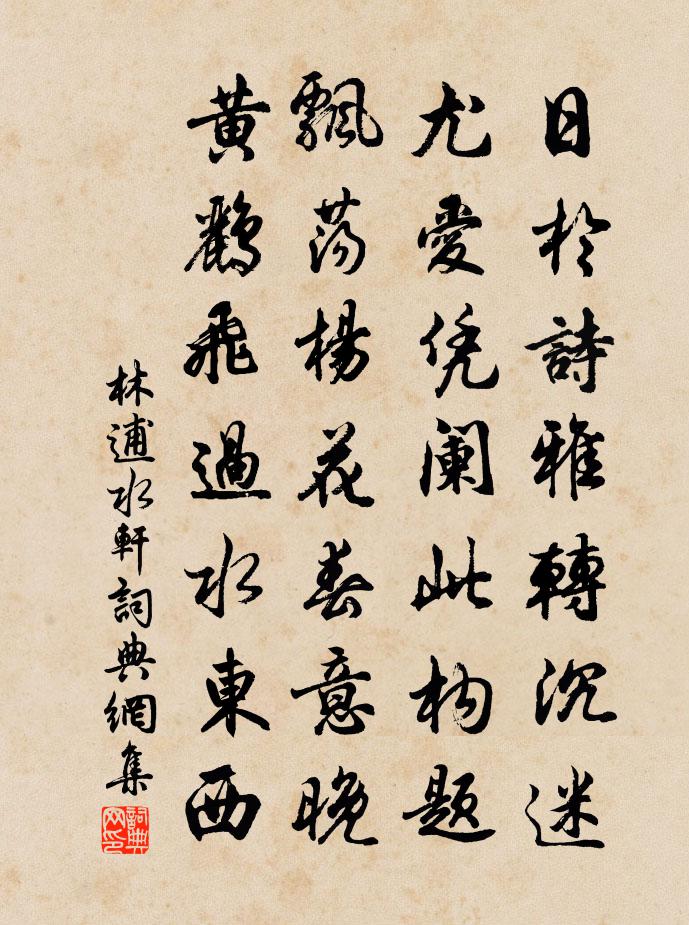 日於詩雅轉沉迷
尤愛凭阑此构题
飄荡楊花春意晚
黄鸝飛過水東西
林逋水軒詞典網集
詞典网印